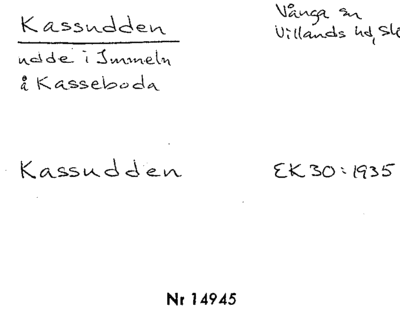 Kassudden
Vånga sn
Villands hd, Sk
udde i Immeln
å Kasseboda
Kassudden
EK 30:1935
Nr 14945